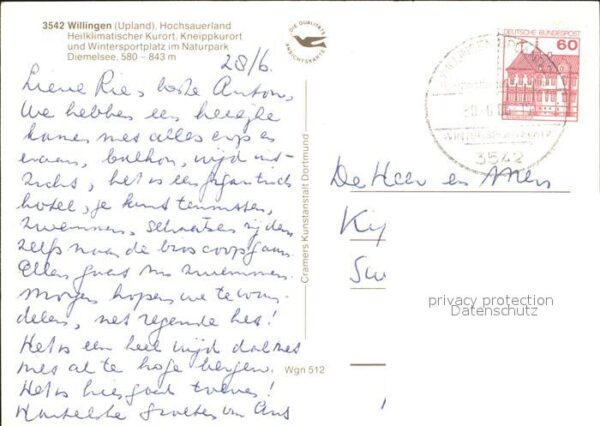 3542 Willingen (Upland), Hochsauerland
Heilklimatischer Kurort, Kneippkurort
und Wintersportplatz im Naturpark
Diemelsee, 580 – 843 m
DIE QUALITÄTS
ANSICHTSKARTE
28/6.
Lieve Ries, beste Anton,
We hebben een heerlijke
kamer met alles erop en
eraan, balkon, wijd uit-
zicht, het is een gigantisch
hotel, je kunt tennissen,
zwemmen, schaatsen rijden
zelfs naar de bioscoop gaan.
Alles gaat zwemmen.
Morgen hopen we te wan-
delen, net regende het!
Het is een heel wijd dal met
niet al te hoge bergen.
Het is hier goed toeven!
Hartelijke groeten van Ans
Cramers Kunstanstalt Dortmund
Wgn 512
DEUTSCHE BUNDESPOST
60
3542
De Heer en Mevr
privacy protection
Datenschutz